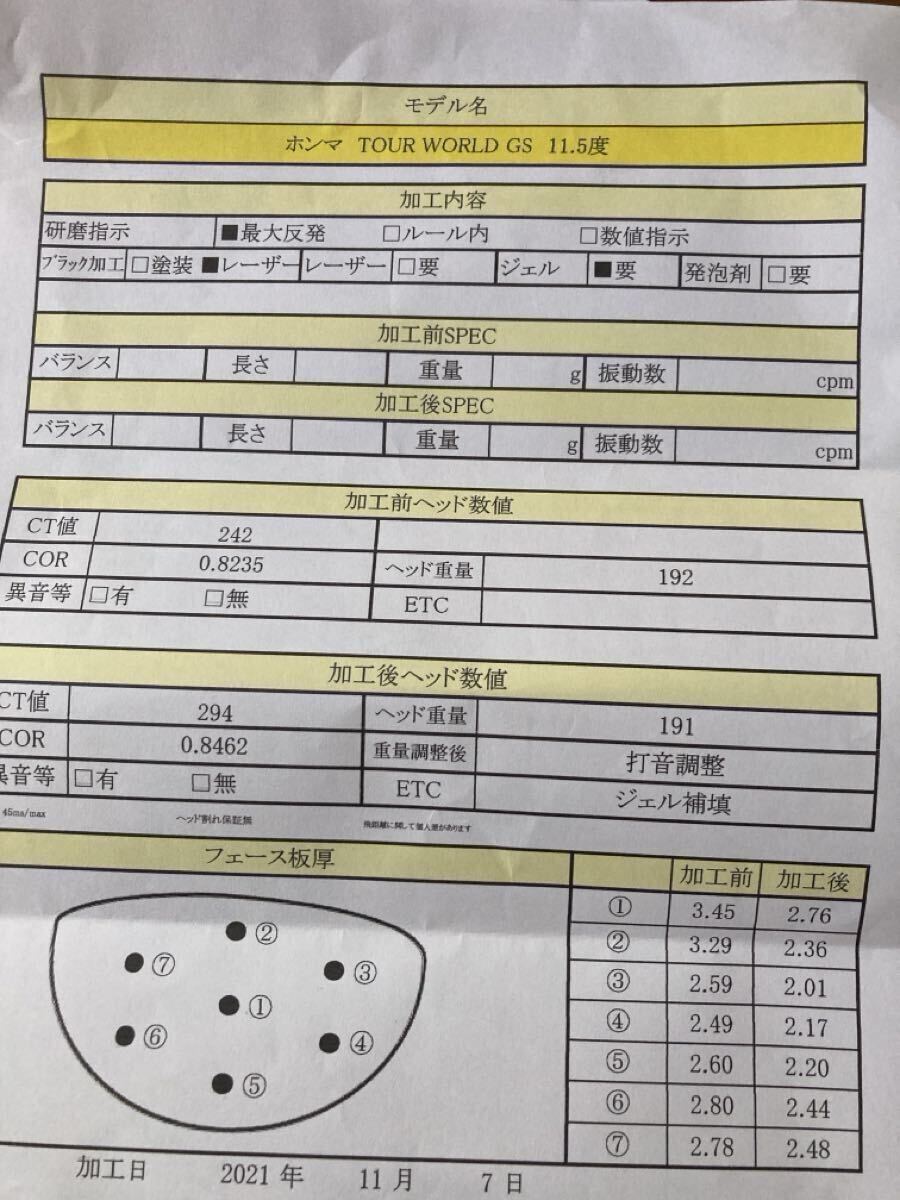 モデル名
ホンマ TOUR WORLD GS 11.5度
加工内容
研磨指示 ■最大反発 □ルール内 □数値指示
ブラック加工 □塗装 ■レーザー レーザー □要 ジェル ■要 発泡剤 □要
加工前SPEC
バランス 長さ 重量 g 振動数 cpm
加工後SPEC
バランス 長さ 重量 g 振動数 cpm
加工前ヘッド数値
CT値 242
COR 0.8235 ヘッド重量 192
異音等 □有 □無 ETC
加工後ヘッド数値
CT値 294 ヘッド重量 191
COR 0.8462 重量調整後 打音調整
異音等 □有 □無 ETC ジェル補填
45ms/max ヘッド割れ保証無 飛距離に関して個人差があります
フェース板厚 加工前 加工後
① 3.45 2.76
② 3.29 2.36
③ 2.59 2.01
④ 2.49 2.17
⑤ 2.60 2.20
⑥ 2.80 2.44
⑦ 2.78 2.48
②
⑦
③
①
⑥
④
⑤
加工日 2021 年 11 月 7 日